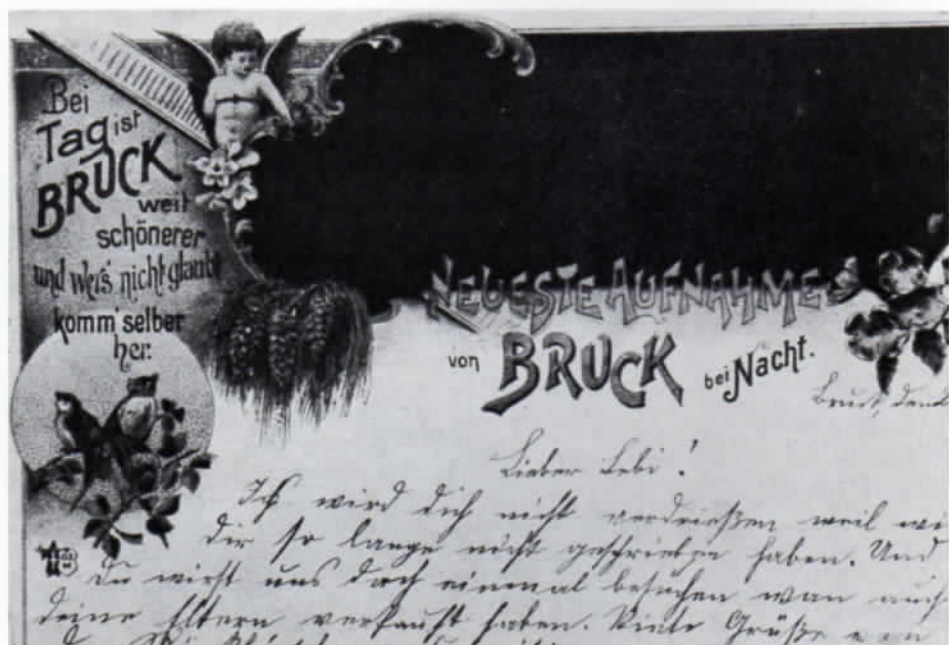 Bei
Tag ist
BRUCK
weit
schönerer
und wer's nicht glaubt
komm' selber
her.
NEUESTE AUFNAHME
von BRUCK bei Nacht.
Bruck, den
Lieber Lebi!
Ich wird dich nicht verdrießen weil wi
dir so lange nicht geschrieben haben. Und
Du wirst uns doch einemal besuchen wan auch
deine Eltern verkauft haben. Viele Grüße von